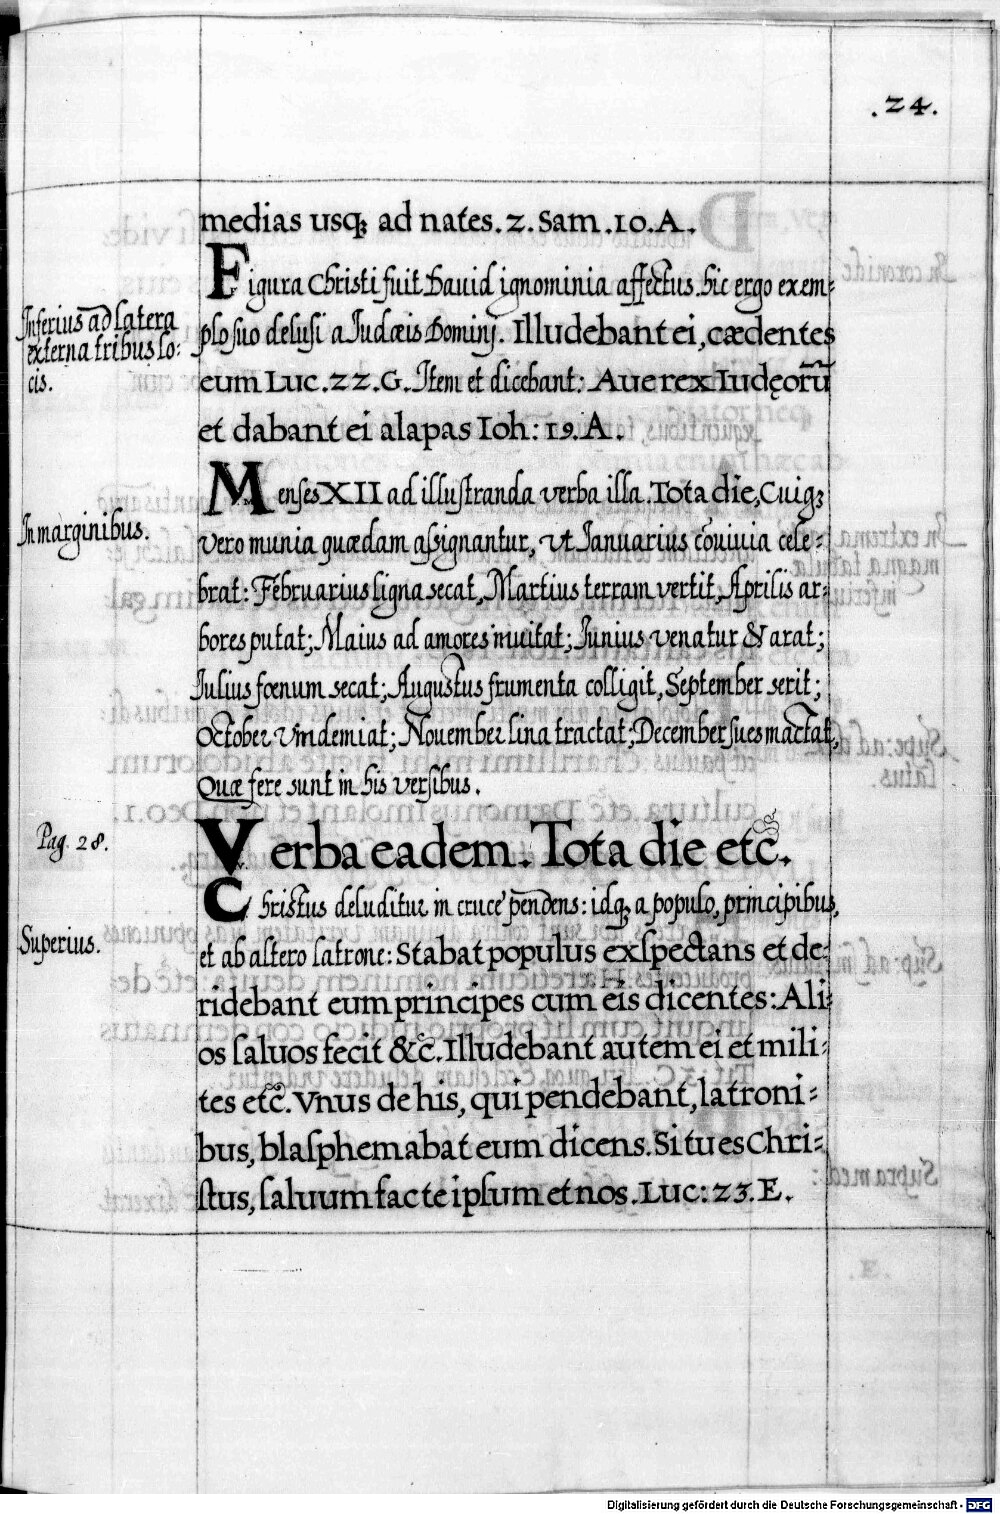 .24.
medias usq; ad nates. 2. Sam. 10. A.
Figura Christi fuit Dauid ignominia affectus. hic ergo exem-
Inferius ad latera
externa tribus lo:
cis.
plo suo delusi a Iudæis Dominj. Illudebant ei, cædentes
eum Luc. 22. G. Item et dicebant: Aue rex Iudęorū
et dabant ei alapas Ioh: 19. A.
Menses XII ad illustranda verba illa. Tota die, Cuiq;
In marginibus.
vero munia quædam assignantur, vt Ianuarius cōuiuia cele-
brat: Februarius ligna secat, Martius terram vertit, Aprilis ar-
bores putat; Maius ad amores inuitat; Iunius venatur & arat;
Iulius fœnum secat; Augustus frumenta colligit, September serit;
October vindemiat; Nouember lina tractat; December sues mactat,
Quæ fere sunt in his versibus.
Pag. 28.
Verba eadem. Tota die etc̃.
Christus deluditur in cruce pendens: idq; a populo, principibus,
Superius.
et ab altero latrone: Stabat populus exspectans et de-
ridebant eum principes cum eis dicentes: Ali-
os saluos fecit &c̃. Illudebant autem ei et mili-
tes etc̃. Vnus de his, qui pendebant, latroni-
bus, blasphemabat eum dicens. Si tu es Chri-
stus, saluum fac te ipsum et nos. Luc: 23. E.
Digitalisierung gefördert durch die Deutsche Forschungsgemeinschaft - DFG